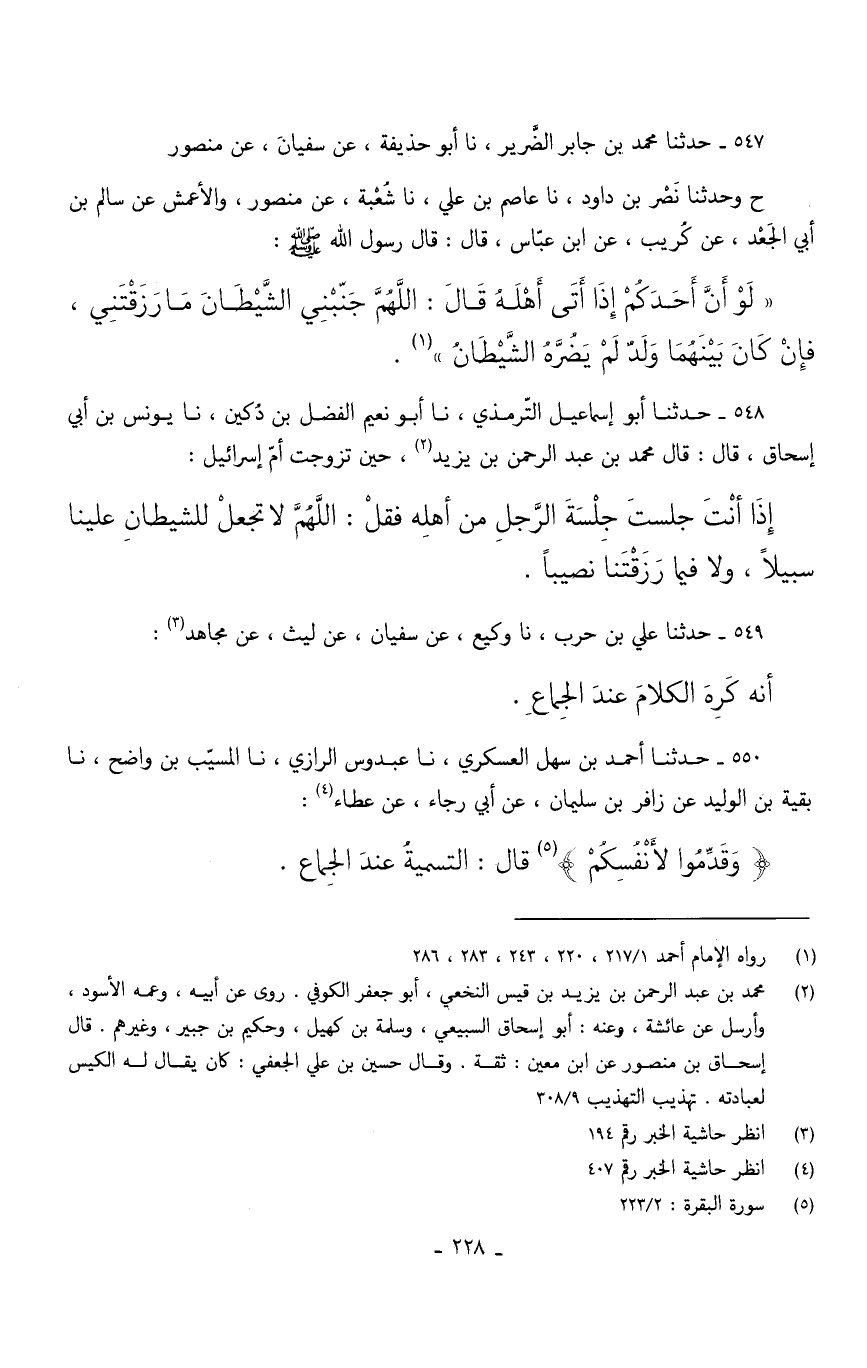 ٥٤٧ ـ حدثنا محمد بن جابر الضَّرير ، نا أبو حذيفة ، عن سفيانَ ، عن منصور
ح وحدثنا نَصْر بن داود ، نا عاصم بن علي ، نا شُعْبة ، عن منصور ، والأعمش عن سالم بن
أبي الجَعْد ، عن كُريب ، عن ابن عبّاس ، قال : قال رسول الله ﷺ :
« لَوْ أَنَّ أَحَدَكُمْ إِذَا أَتَى أَهْلَهُ قَالَ : اللَّهُمَّ جَنّبْنِي الشَّيْطَانَ مَا رَزَقْتَنِي ،
فإِنْ كَانَ بَيْنَهُمَا وَلَدٌ لَمْ يَضُرَّهُ الشَّيْطَانُ »(١) .
٥٤٨ ـ حدثنا أبو إسماعيل التّرمذي ، نا أبو نعيم الفضل بن دُكين ، نا يونس بن أبي
إسحاق ، قال : قال محمد بن عبد الرحمن بن يزيد(٢) ، حين تزوجت أمّ إسرائيل :
إِذَا أنْتَ جلستَ جِلْسَةَ الرَّجلِ من أهلِه فقلْ : اللَّهُمَّ لا تجعلْ للشيطانِ علينا
سبيلاً ، ولا فيما رَزَقْتَنا نصيباً .
٥٤٩ ـ حدثنا علي بن حرب ، نا وكيع ، عن سفيان ، عن ليث ، عن مجاهد(٣) :
أنه كَرِهَ الكلامَ عندَ الجِماعِ .
٥٥٠ ـ حدثنا أحمد بن سهل العسكري ، نا عبدوس الرازي ، نا المسيّب بن واضح ، نا
بقية بن الوليد عن زافر بن سليمان ، عن أبي رجاء ، عن عطاء(٤) :
﴿ وَقَدِّمُوا لأَنْفُسِكُمْ ﴾(٥) قال : التسميةُ عندَ الجِماعِ .
(١) رواه الإمام أحمد ٢١٧/١ ، ٢٢٠ ، ٢٤٣ ، ٢٨٣ ، ٢٨٦
(٢) محمد بن عبد الرحمن بن يزيد بن قيس النخعي ، أبو جعفر الكوفي . روى عن أبيه ، وعمه الأسود ،
وأرسل عن عائشة ، وعنه : أبو إسحاق السبيعي ، وسلمة بن كهيل ، وحكيم بن جبير ، وغيرهم . قال
إسحاق بن منصور عن ابن معين : ثقة . وقال حسين بن علي الجعفي : كان يقال له الكيس
لعبادته . تهذيب التهذيب ٣٠٨/٩
(٣) انظر حاشية الخبر رقم ١٩٤
(٤) انظر حاشية الخبر رقم ٤٠٧
(٥) سورة البقرة : ٢٢٣/٢
ـ ٢٢٨ ـ